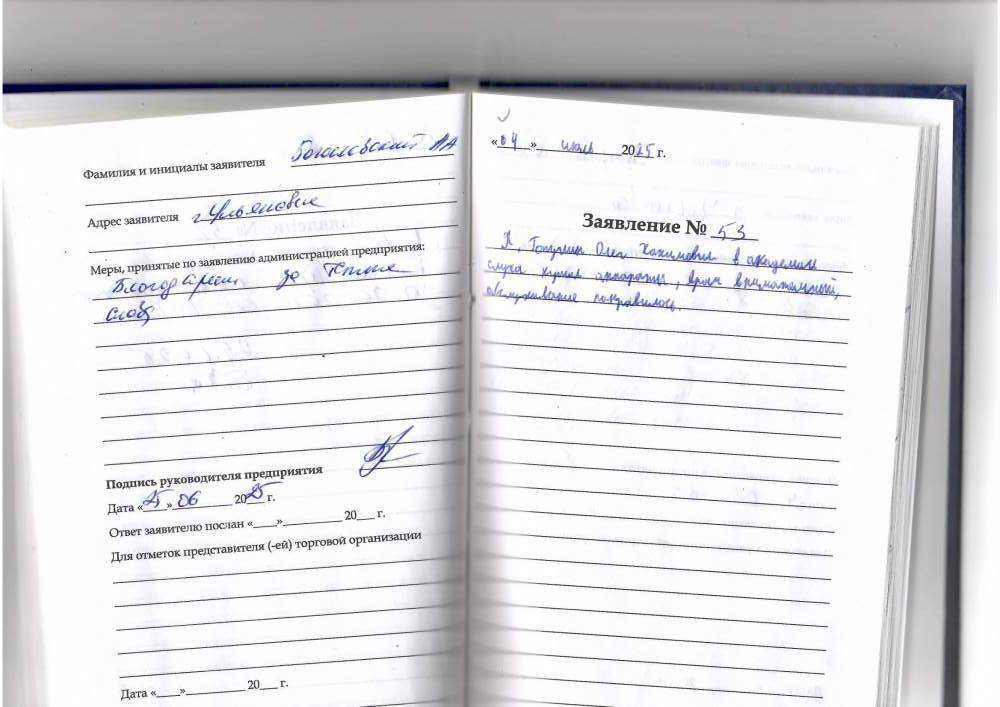 Фамилия и инициалы заявителя Богословский АА
Адрес заявителя г Ульяновск
Меры, принятые по заявлению администрацией предприятия:
Благодарим за теплые
слова
Подпись руководителя предприятия
Дата «25» 06 2025 г.
Ответ заявителю послан «___»__________ 20___ г.
Для отметок представителя (-ей) торговой организации
Дата «___»__________ 20___ г.
«04» июль 2025 г.
Заявление № 53
Я, Олег в академии
слуха купил аппараты, врач внимательный,
обслуживание понравилось.